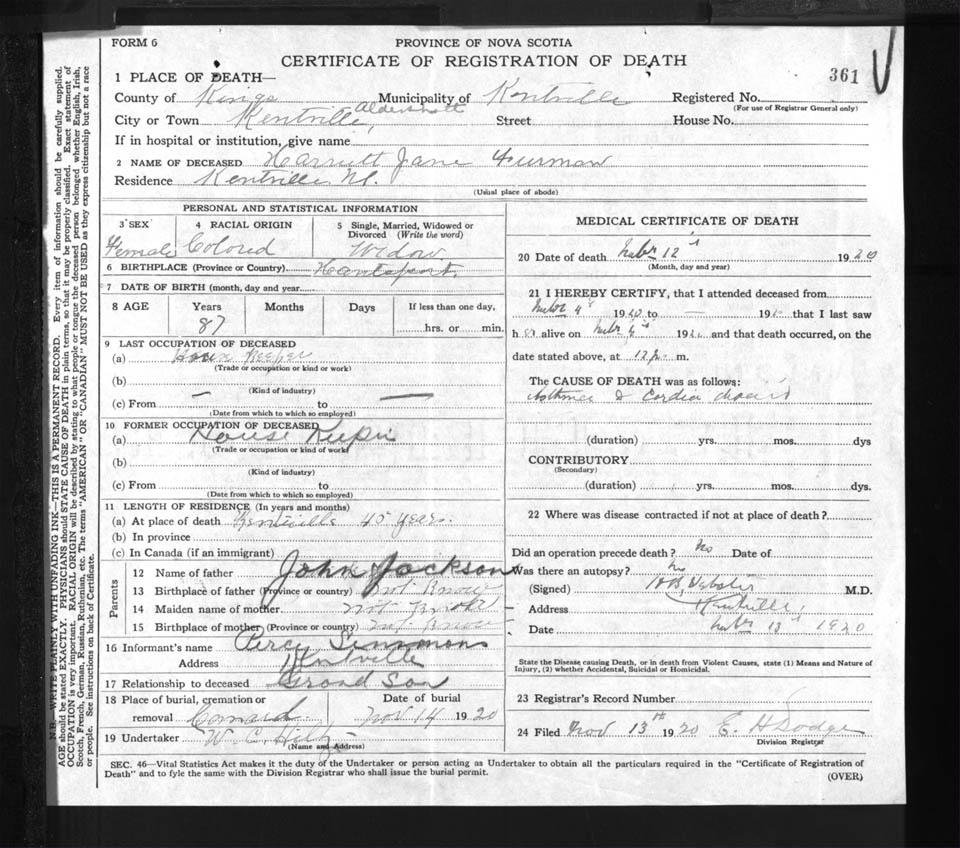 FORM 6
PROVINCE OF NOVA SCOTIA
CERTIFICATE OF REGISTRATION OF DEATH
361
1 PLACE OF DEATH—
County of Kings Municipality of Kentville Registered No.
(For use of Registrar General only)
City or Town Kentville, Aldershott Street House No.
If in hospital or institution, give name
2 NAME OF DECEASED Harriett Jane Furman
Residence Kentville N.S.
(Usual place of abode)
PERSONAL AND STATISTICAL INFORMATION
3 SEX 4 RACIAL ORIGIN 5 Single, Married, Widowed or Divorced (Write the word)
Female Colored Widow
6 BIRTHPLACE (Province or Country) Hantsport
7 DATE OF BIRTH (month, day and year)
8 AGE Years Months Days If less than one day,
87 hrs. or min.
9 LAST OCCUPATION OF DECEASED
(a) House Keeper
(Trade or occupation or kind or work)
(b)
(Kind of industry)
(c) From — to —
(Date from which to which so employed)
10 FORMER OCCUPATION OF DECEASED
(a) House Keeper
(Trade or occupation or kind of work)
(b)
(Kind of industry)
(c) From to
(Date from which to which so employed)
11 LENGTH OF RESIDENCE (In years and months)
(a) At place of death Kentville 45 years.
(b) In province
(c) In Canada (if an immigrant)
Parents
12 Name of father John Jackson
13 Birthplace of father (Province or country) Not Know
14 Maiden name of mother Not Know
15 Birthplace of mother (Province or country) Not Know
16 Informant's name Percy Simmons
Address Kentville
17 Relationship to deceased Grand Son
18 Place of burial, cremation or Date of burial
removal Cornwallis Nov 14 1920
19 Undertaker W. C.
(Name and Address)
MEDICAL CERTIFICATE OF DEATH
20 Date of death Nov 12 1920
(Month, day and year)
21 I HEREBY CERTIFY, that I attended deceased from
Nov 4 1920 to — 192 that I last saw
h alive on Nov 192 and that death occurred, on the
date stated above, at 12 m.
The CAUSE OF DEATH was as follows:
Asthma & Cardia
(duration) yrs. mos. dys
CONTRIBUTORY
(Secondary)
(duration) yrs. mos. dys.
22 Where was disease contracted if not at place of death?
Did an operation precede death? No Date of
Was there an autopsy? No
(Signed) Webster M.D.
Address Kentville,
Date Nov 13 1920
State the Disease causing Death, or in death from Violent Causes, state (1) Means and Nature of
Injury, (2) whether Accidental, Suicidal or Homicidal.
23 Registrar's Record Number
24 Filed Nov 13th 1920 E. H Dodge
Division Registrar
SEC. 46—Vital Statistics Act makes it the duty of the Undertaker or person acting as Undertaker to obtain all the particulars required in the "Certificate of Registration of
Death" and to fyle the same with the Division Registrar who shall issue the burial permit.
(OVER)
N.B.—WRITE PLAINLY WITH UNFADING INK—THIS IS A PERMANENT RECORD. Every item of information should be carefully supplied.
AGE should be stated EXACTLY. PHYSICIANS should STATE CAUSE OF DEATH in plain terms, so that it may be properly classified. Exact statement of
OCCUPATION is very important. RACIAL ORIGIN will be described by stating to what people or tongue the deceased person belonged whether English, Irish,
Scotch, French, German, Russian, Ruthenian, etc. The terms "AMERICAN" OR "CANADIAN" MUST NOT BE USED as they express citizenship but not a race
or people. See instructions on back of Certificate.